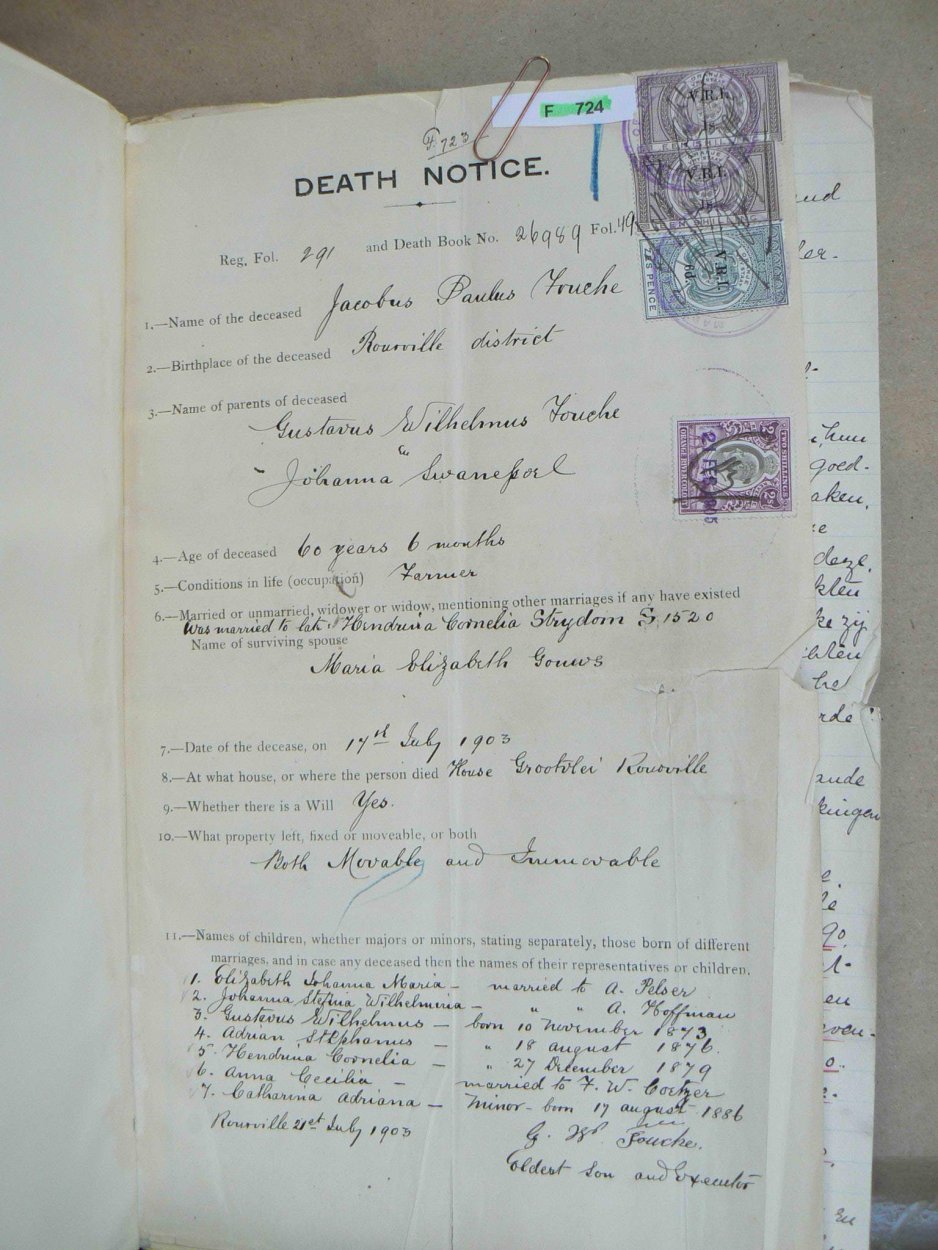 F 724
F. 723
DEATH NOTICE.
Reg. Fol. 291 and Death Book No. 26989 Fol. 49
1.—Name of the deceased Jacobus Paulus Fouche
2.—Birthplace of the deceased Rouxville district
3.—Name of parents of deceased
Gustavus Wilhelmus Fouche
en
Johanna Swanepoel
4.—Age of deceased 60 years 6 months
5.—Conditions in life (occupation) Farmer
6.—Married or unmarried, widower or widow, mentioning other marriages if any have existed
Was married to late Hendrina Cornelia Strydom S. 1520
Name of surviving spouse
Maria Elizabeth Gouws
7.—Date of the decease, on 17th July 1903
8.—At what house, or where the person died House Grootvlei Rouxville
9.—Whether there is a Will Yes.
10.—What property left, fixed or moveable, or both
Both Movable and Immovable
11.—Names of children, whether majors or minors, stating separately, those born of different
marriages, and in case any deceased then the names of their representatives or children.
1. Elizabeth Johanna Maria — married to A. Pelser
2. Johanna Stefina Wilhelmina — " " A. Hoffman
3. Gustavus Wilhelmus — born 10 November 1873
4. Adrian Stephanus — " 18 august 1876.
5. Hendrina Cornelia — " 27 December 1879
6. Anna Cecilia — married to F. W. Coetzer
7. Catharina Adriana — Minor - born 17 august 1886
Rouxville 21st July 1903
G. Wm. Fouche.
Oldest son and Executor
V.R.I.
1s
V.R.I.
1s
V.R.I.
6d.
ZES PENCE
TWO SHILLINGS
2s
2s
2 FEB 1905
goed-
aken,
deze,
ke zij
kingen